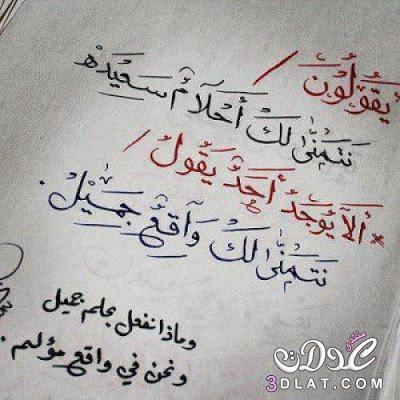 يقولون /
نتمنى لك أحلام سعيده
* ألا يوجد أحد يقول /
نتمنى لك واقع جميل.
وماذا نفعل بحلم جميل
ونحن في واقع مؤلم.
منتدى
عدلات
3DLAT.COM